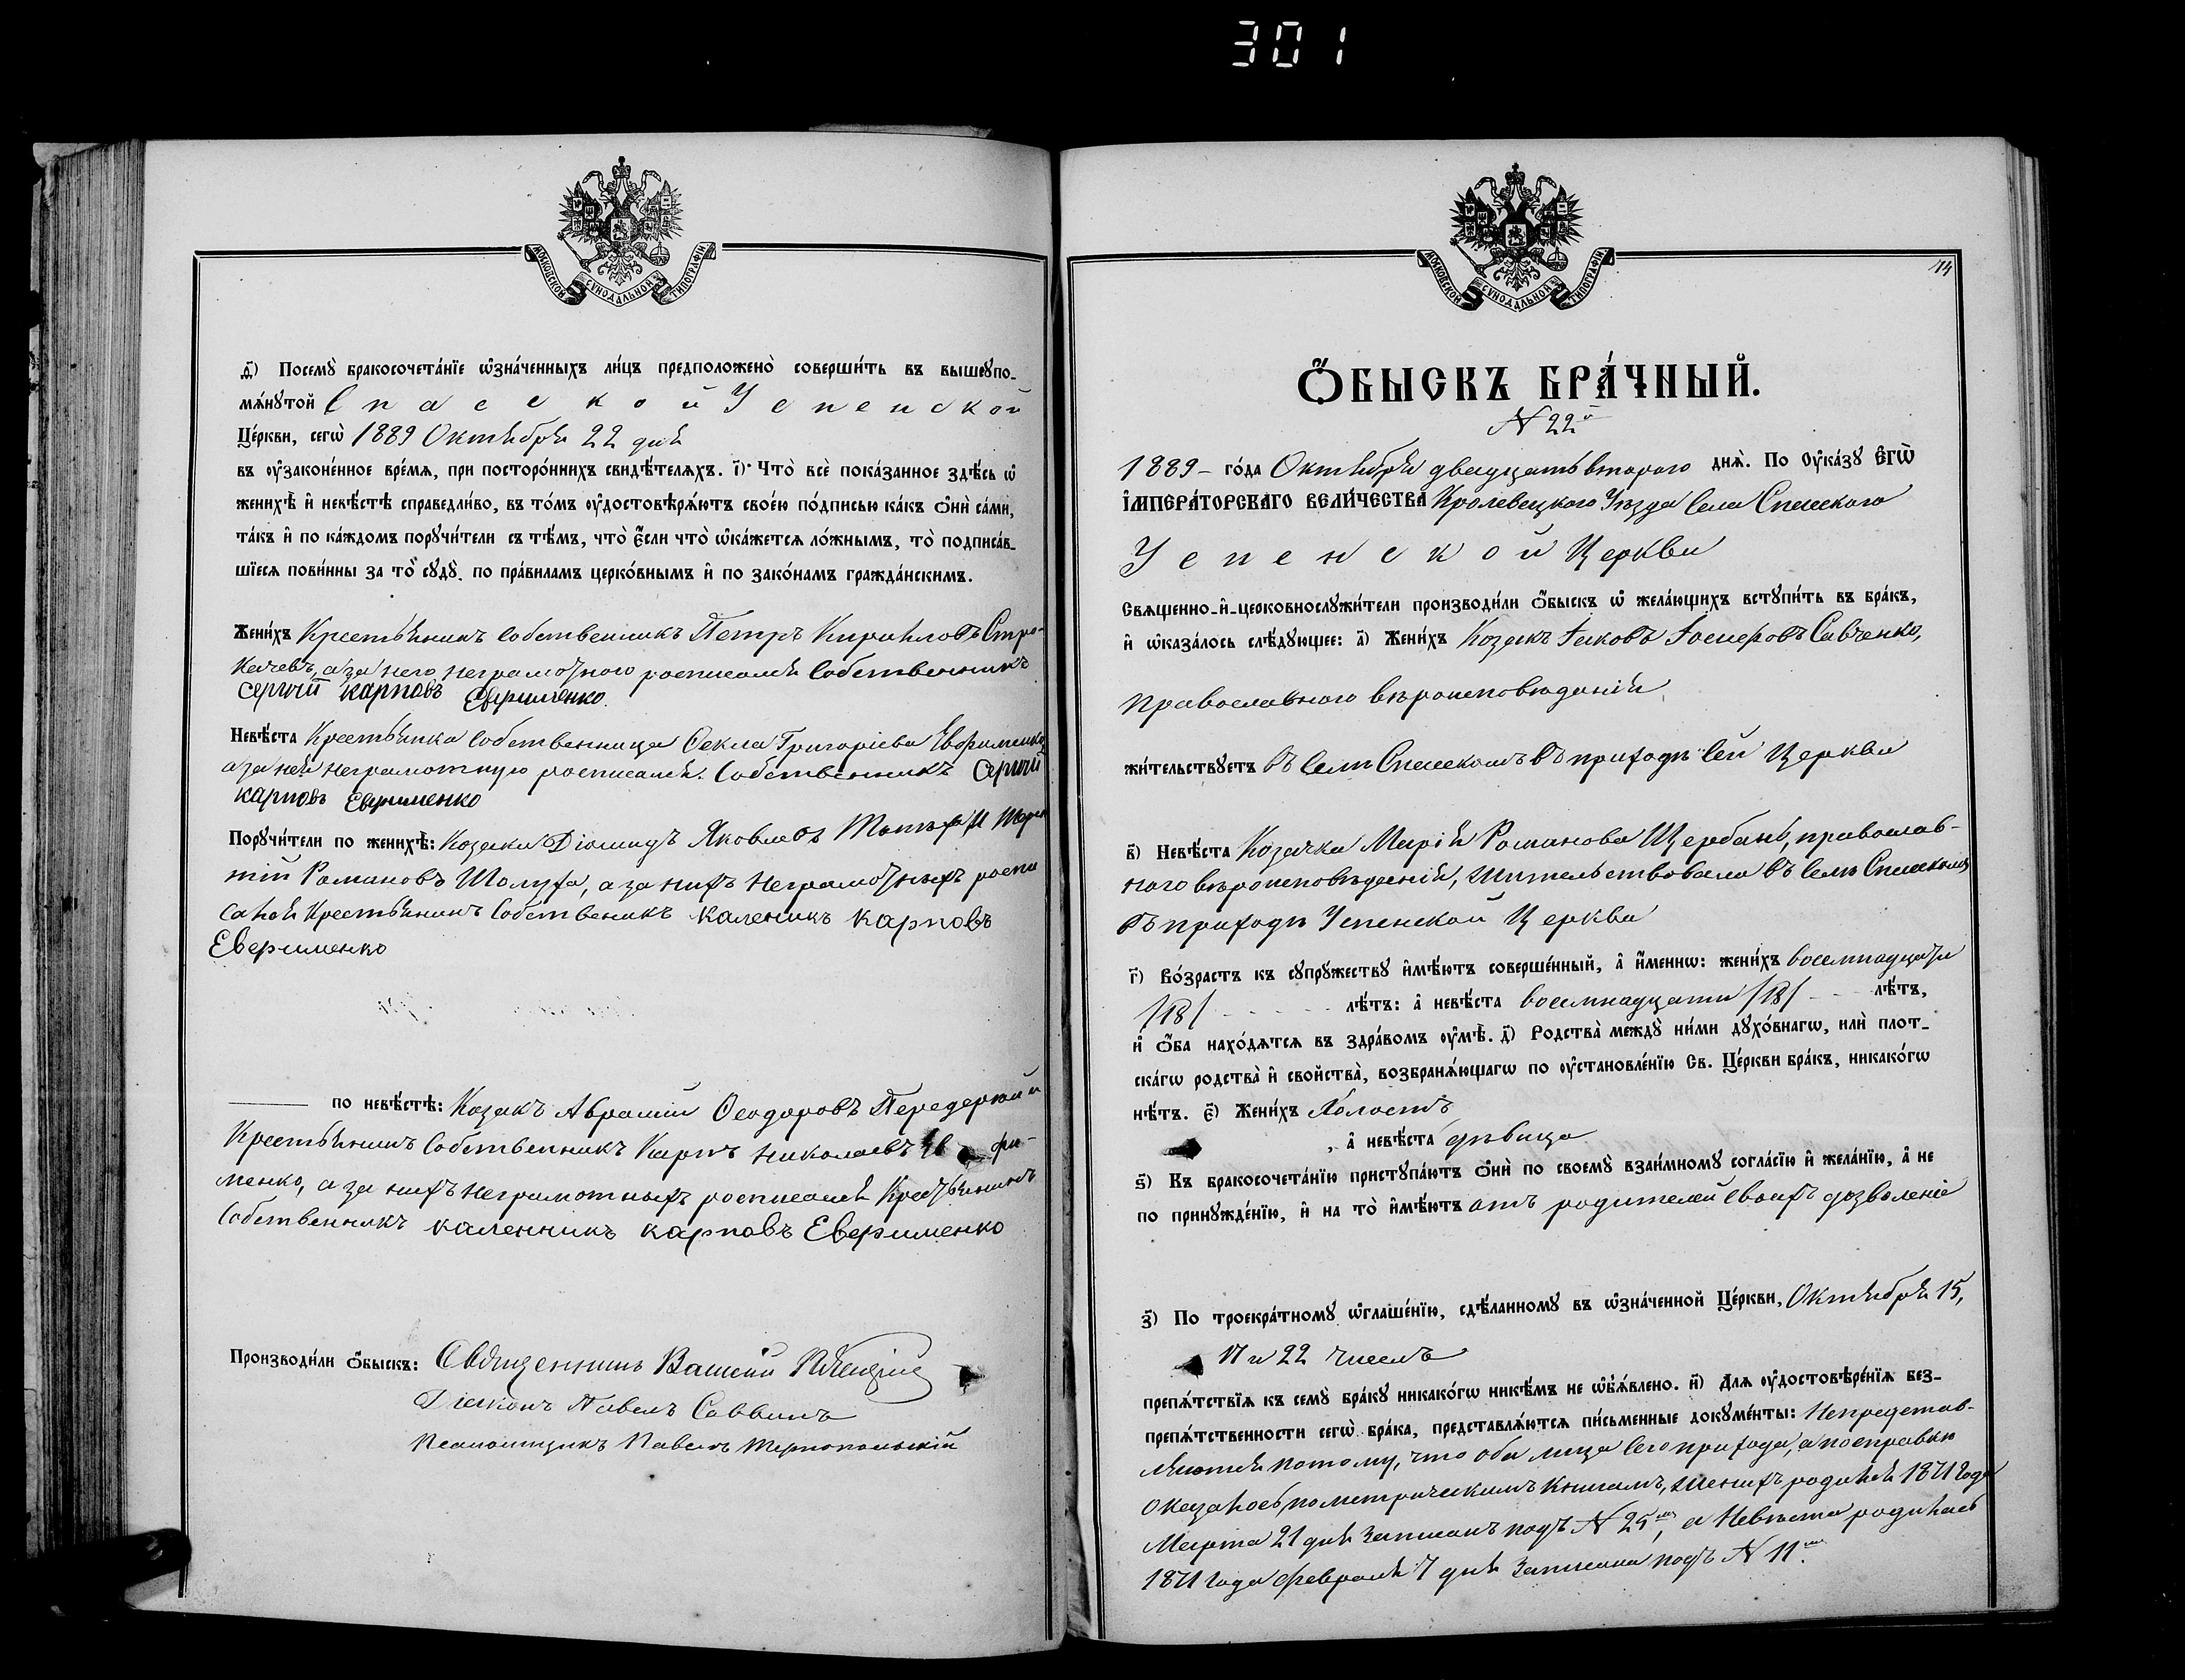 301
МОСКОВСКОЙ СѴНОДАЛЬНОЙ ТИПОГРАФІИ
д҃) Посемꙋ̀ бракосочета́нїе ѡ҆зна́ченныхъ ли́цъ предположено̀ соверши́ть въ вышеꙋпо-
мѧ́нꙋтой Спасской Успенской
Це́ркви, сегѡ̀ 1889 Октября 22 дня
въ ᲂу҆законе́нное вре́мѧ, при посторо́ннихъ свидѣ́телѧхъ. і҃) Что̀ всѐ пока́занное здѣ́сь ѡ҆
женихѣ̀ и҆ невѣ́стѣ справедли́во, въ то́мъ ᲂу҆достовѣрѧ́ютъ свое́ю по́дписью ка́къ ѻ҆нѝ са́ми,
та́къ и҆ по ка́ждомъ порꙋчи́тели съ тѣ́мъ, что̀ є҆́сли что̀ ѡ҆ка́жетсѧ ло́жнымъ, то̀ подписа́в-
шїесѧ пови́нны за то̀ сꙋдꙋ̀ по пра́виламъ церко́внымъ и҆ по зако́намъ гражда́нскимъ.
Жени́хъ Крестьянинъ собственникъ Петръ Кириловъ Стро-
качевъ, а за него неграмотного росписался Собственникъ
Сергий карповъ Евфименко.
Невѣ́ста Крестьянка собственница Ѳекла Григоріева Евфименко,
а за ней неграмотную росписался. Собственникъ Сергий
карповъ Евфименко
Порꙋчи́тели по женихѣ̀: Козаки Діомидъ Яковлевъ
тій Романовъ Шолуха, а за нихъ неграмотныхъ роспи
сался Крестьянинъ Собственикъ каленикъ карповъ
Евфименко
по невѣ́стѣ: Козакъ Аврамій Ѳеодоровъ Передерій и
Крестьянинъ Собственникъ Карпъ Николаевъ Ев фи-
менко, а за нихъ неграмотныхъ росписался Крестьянинъ
Собственникъ каленникъ карповъ Евфименко
Производи́ли ѻ҆́быскъ: Священникъ Василій
Діаконъ Павелъ Саввинъ
Псаломщикъ Павелъ Тернопольскій
МОСКОВСКОЙ СѴНОДАЛЬНОЙ ТИПОГРАФІИ
14
Ѻ҆́БЫСКЪ БРА́ЧНЫЙ.
N 22й
1889 – го́да Октября двадцать второго днѧ̀. По Оу҆ка́зꙋ Є҆ГѠ̀
І҆МПЕРА́ТОРСКАГО ВЕЛИ́ЧЕСТВА Кролевецкого Уѣзда Села Спасского
Успенской Церкви
Свѧщенно-и҆-церковнослꙋжи́тели производи́ли ѻ҆́быскъ ѡ҆ жела́ющихъ встꙋпи́ть въ бра́къ,
и҆ ѡ҆каза́лось слѣ́дꙋющее: а҃) Жени́хъ Козакъ Іаковъ Іосифовъ Савченко,
православного вѣроисповѣданія
жи́тельствꙋетъ въ Селѣ Спасскомъ въ приходѣ сей Церкви
в҃) Невѣ́ста Козачка Марія Романова Щербань, православ-
ного вѣроисповѣданія, жительствовала въ Селѣ Спасскомъ
въ приходѣ Успенской Церкви
г҃) Во́зрастъ къ сꙋпрꙋ́жествꙋ и҆мѣ́ютъ соверше́нный, а҆ и҆́меннѡ: жени́хъ восемнадцати
/18/ лѣ́тъ: а҆ невѣ́ста восемнадцати /18/ лѣ́тъ,
и҆ ѻ҆́ба нахо́дѧтсѧ въ здра́вомъ ᲂу҆мѣ̀. д҃) Родства̀ междꙋ̀ ни́ми дꙋхо́внагѡ, илѝ плот-
ска́гѡ родства̀ и҆ свойства̀, возбранѧ́ющагѡ по ᲂу҆становле́нїю Св. Це́ркви бра́къ, никако́гѡ
нѣ́тъ. є҃) Жени́хъ Холостъ
, а҆ невѣ́ста дѣвица
ѕ҃) Къ бракосочета́нїю пристꙋпа́ютъ ѻ҆нѝ по своемꙋ̀ взаи́мномꙋ согла́сїю и҆ жела́нїю, а҆ не
по принꙋжде́нїю, и҆ на то̀ и҆мѣ́ютъ отъ родителей своихъ дозволеніе
з҃) По троекра́тномꙋ ѡ҆глаше́нїю, сдѣ́ланномꙋ въ ѡ҆зна́ченной Це́ркви, Октября 15,
17 и 22 числъ
препѧ́тствїѧ къ семꙋ̀ бра́кꙋ никако́гѡ никѣ́мъ не ѡ҆б̾ѧ́влено. и҃) Длѧ ᲂу҆достовѣре́нїѧ без-
препѧ́тственности сегѡ̀ бра́ка, представлѧ́ютсѧ пи́сьменные докꙋме́нты: Непредстав-
ляются потому, что оба лица сего прихода, а по справкѣ
оказалось, по метрическимъ книгамъ, женихъ родился 1871 года
Марта 21 дня записанъ подъ N 25мъ, а Невѣста родилась
1871 года февраля 7 дня Записана подъ N 11мъ.